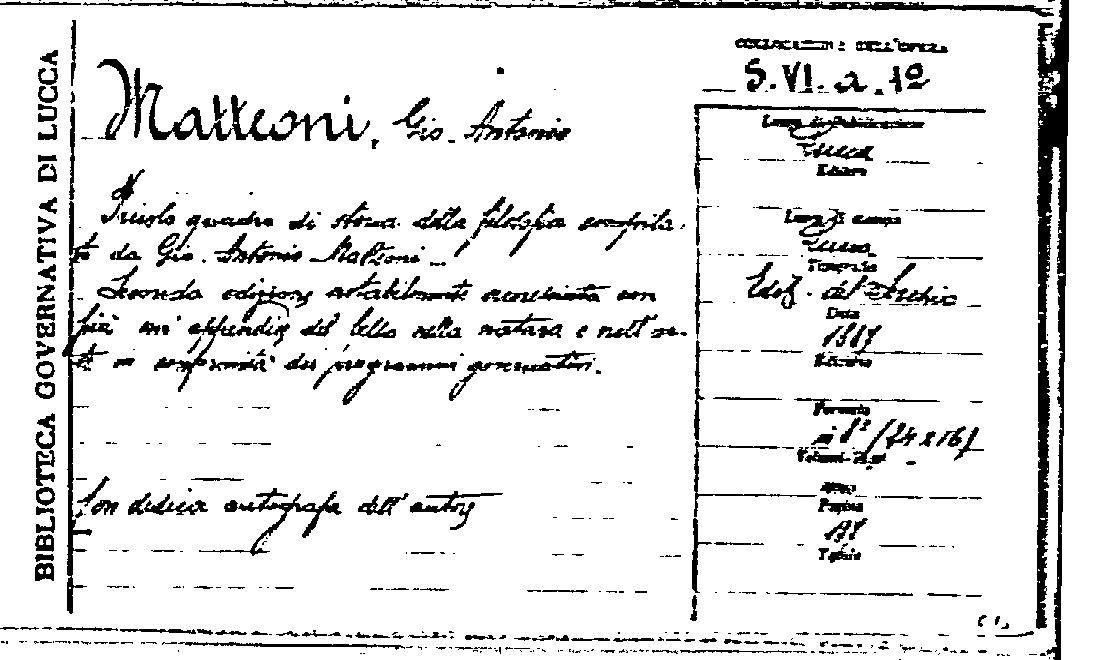 BIBLIOTECA GOVERNATIVA DI LUCCA
COLLOCAZIONE DELL'OPERA
S. VI. a. 19
Matteoni, Gio. Antonio
Piccolo quadro di storia della filosofia compila-
to da Gio. Antonio Matteoni
Seconda edizione notabilmente accresciuta con
più un'appendice del bello nella natura e nell'ar-
te in conformità dei programmi governativi.
Con dedica autografa dell'autore
Luogo di Pubblicazione
Lucca
Editore
Luogo di stampa
Lucca
Tipografia
Edif. del Serchio
Data
Edizione
Formato
in 8° (24x16)
Pagine
Tavole